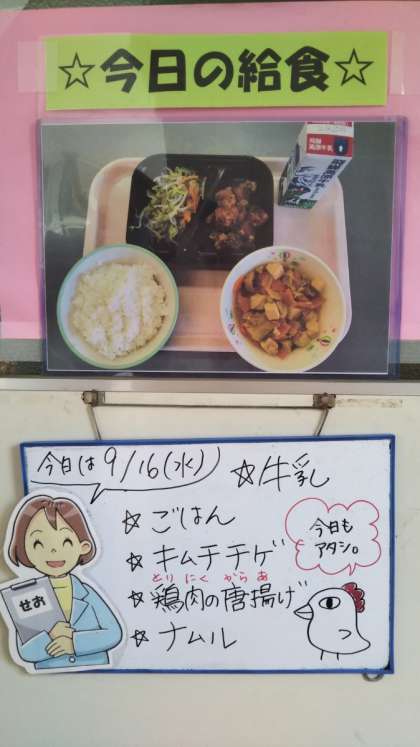 ☆今日の給食☆
今日は9/16(水)
☆牛乳
☆ごはん
☆キムチチゲ
とり にく から あ
☆鶏肉の唐揚げ
☆ナムル
今日も
アタシ。
せお